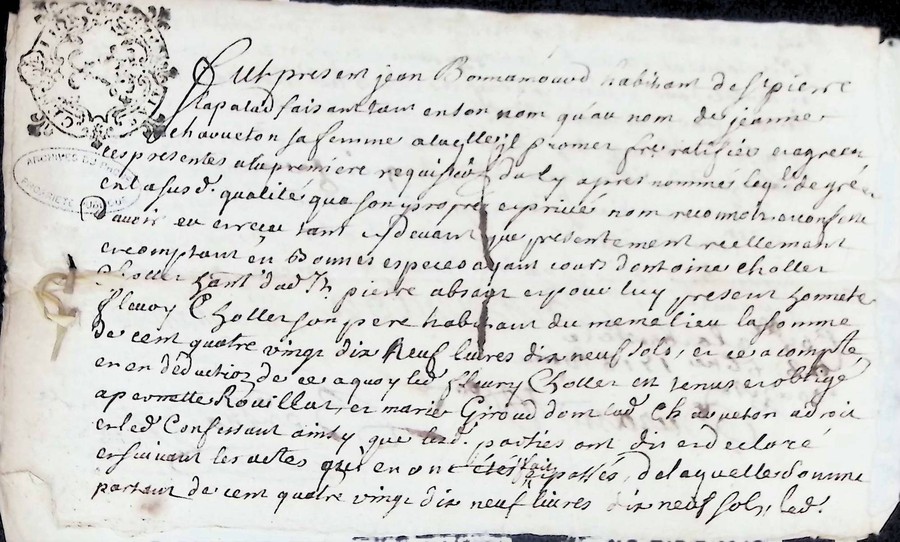 Fut present jean Bonnamound habitant de st pierre
lapalud faisant tant en son nom qu'au nom de jeanne
chavueton sa femme a laquelle il promet fre ratifier et agreer
ces presentes a la premiere requisition du ly apres nommé leql de gré
en la susd. qualité que son propre et privé nom reconnoit et confesse
avoir eu et reçu tant cy devant que presentement reellement
et comptant en Bonnes especes ayant cours d'antoine chollet
Chollet hant dud. st pierre absent et pour luy present honnete
fleury Chollet son pere habitant du meme lieu la somme
de cent quatre vingt dix neuf livres dix neuf sols, et ce a compte,
et en déduction de ce a quoy led. fleury Chollet est tenu et obligé
a pernette Rouillat, et marie Giroud dont lad. Chavueton a droit
et led Confessant ainsy que lesd. parties ont dit et declaré
ensuivant les actes qui en ont étés fait et passés, de laquelle somme
partant de cent quatre vingt dix neuf livres dix neuf sols, led.
ARCHIVES DU